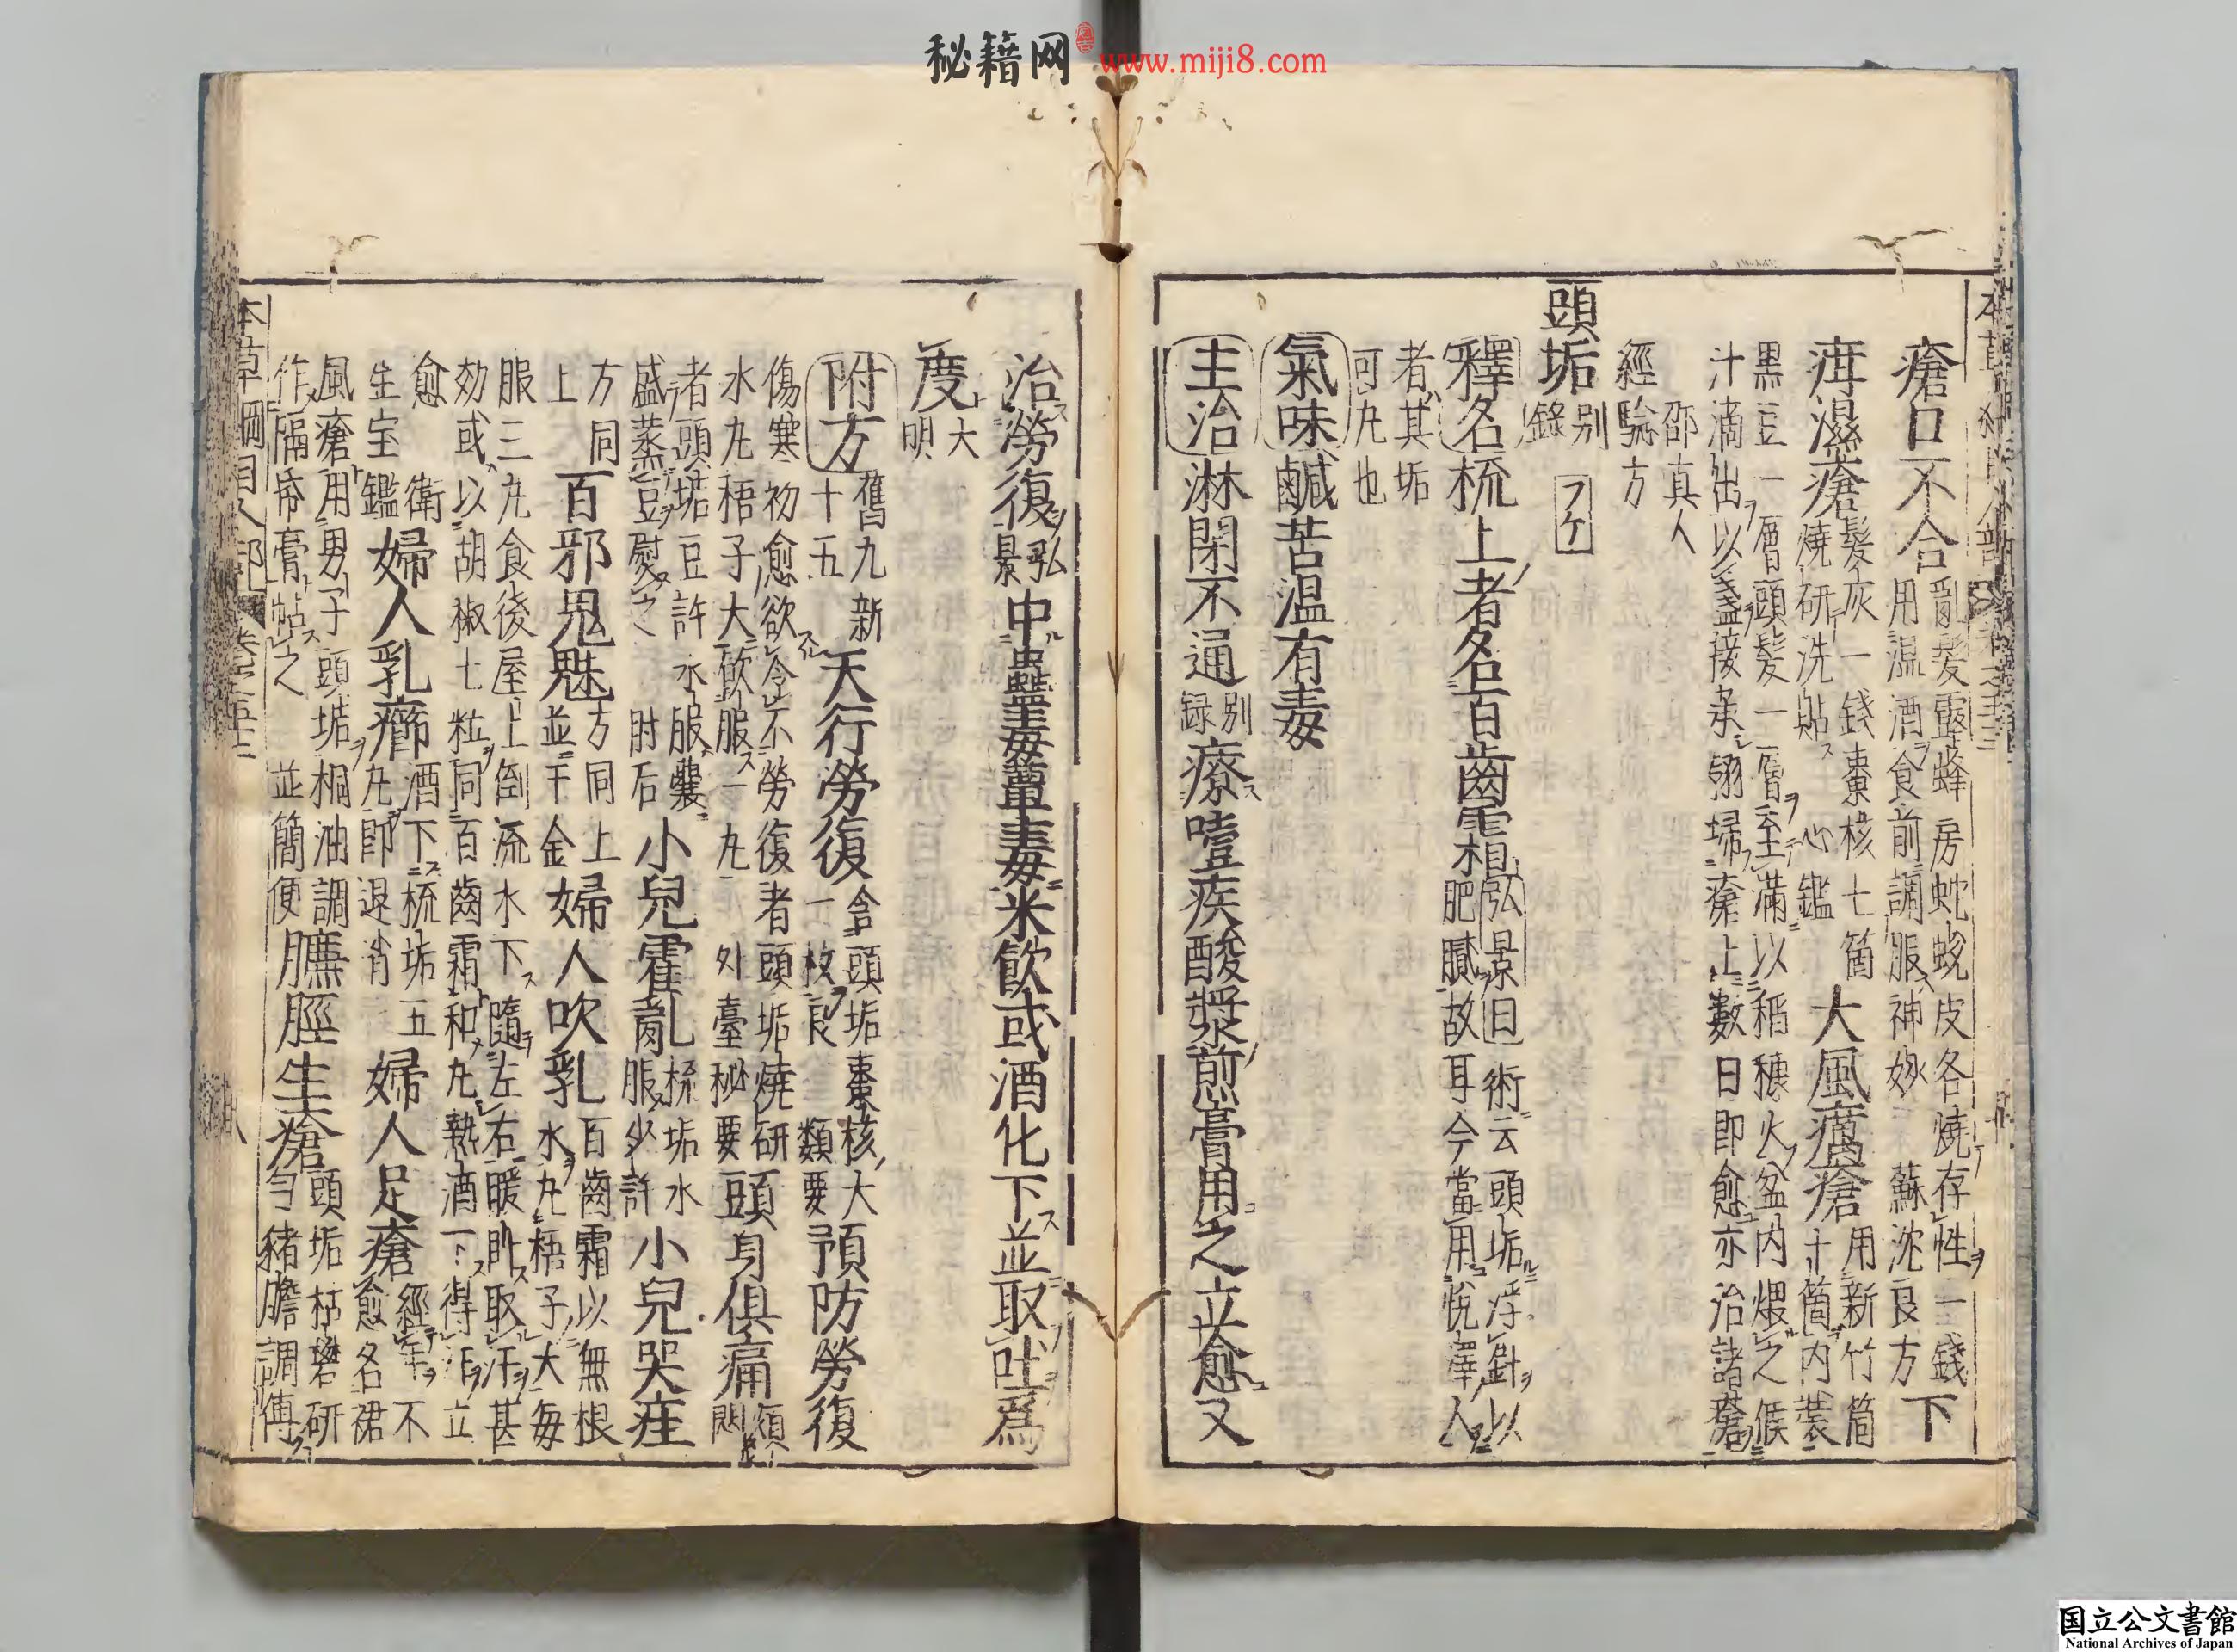 秘籍网 www.miji8.com
瘡口不合 亂髮露蜂房蛇蛻皮各燒存性一錢用温酒食前調服神妙 蘇沈良方 下
疳濕瘡 髮灰一錢棗核七箇燒研洗貼 心鑑 大風癘瘡 用新竹筒十箇内裝
黒豆一層頭髮一層至滿以稻糠火盆内煨之候
汁滴出以盞接承翎掃瘡上數日即愈亦治諸瘡
邵真人
經驗方
頭垢 别錄 フケ
釋名 梳上者名百齒霜 弘景曰術云頭垢浮針以肥膩故耳今當用悅澤人
者其垢
可丸也
氣味 鹹苦温有毒
主治 淋閉不通 别録 療噎疾酸漿煎膏用之立愈又
治勞復 弘景 中蠱毒蕈毒米飲或酒化下並取吐爲
度 大明
附方 舊九新十五 天行勞復 含頭垢棗核大一枚良 類要 預防勞復
傷寒初愈欲令不勞復者頭垢燒研
水丸梧子大飲服一丸 外臺秘要 頭身俱痛 煩悶
者頭垢豆許水服囊
盛蒸豆熨之 肘石 小兒霍亂 梳垢水服少許 小兒哭疰
方同上 百邪鬼魅 方同上並千金 婦人吹乳 百齒霜以無根水丸梧子大每
服三丸食後屋上倒流水下隨左右暖臥取汗甚
効或以胡椒七粒同百齒霜和丸熱酒下得汗立
愈
衛生宝鑑 婦人乳癤 酒下梳垢五丸即退消 婦人足瘡 經年不愈名裙
風瘡用男子頭垢桐油調
作隔紙膏貼之 並簡便 臁脛生瘡 頭垢枯礬研勻猪膽調傅
本草綱目人部 卷之五十二
国立公文書館
National Archives of Japan